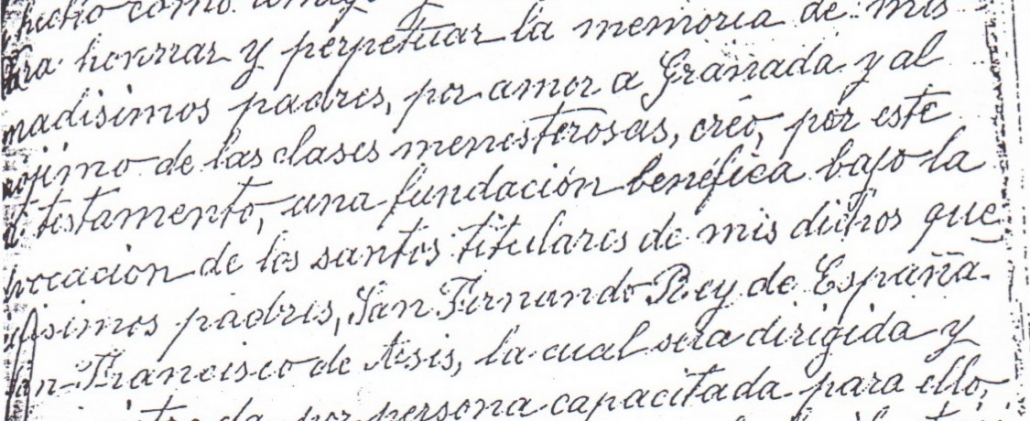 dicho como
para honrrar y perpetuar la memoria de mis
amadisimos padres, por amor a Granada y al
projimo de las clases menesterosas, creo, por este
mi testamento, una fundación benéfica bajo la
advocacion de los santos titulares de mis dichos que
ridisimos padres, San Fernando Rey de España
San Francisco de Asis, la cual será dirigida y
por persona capacitada para ello,